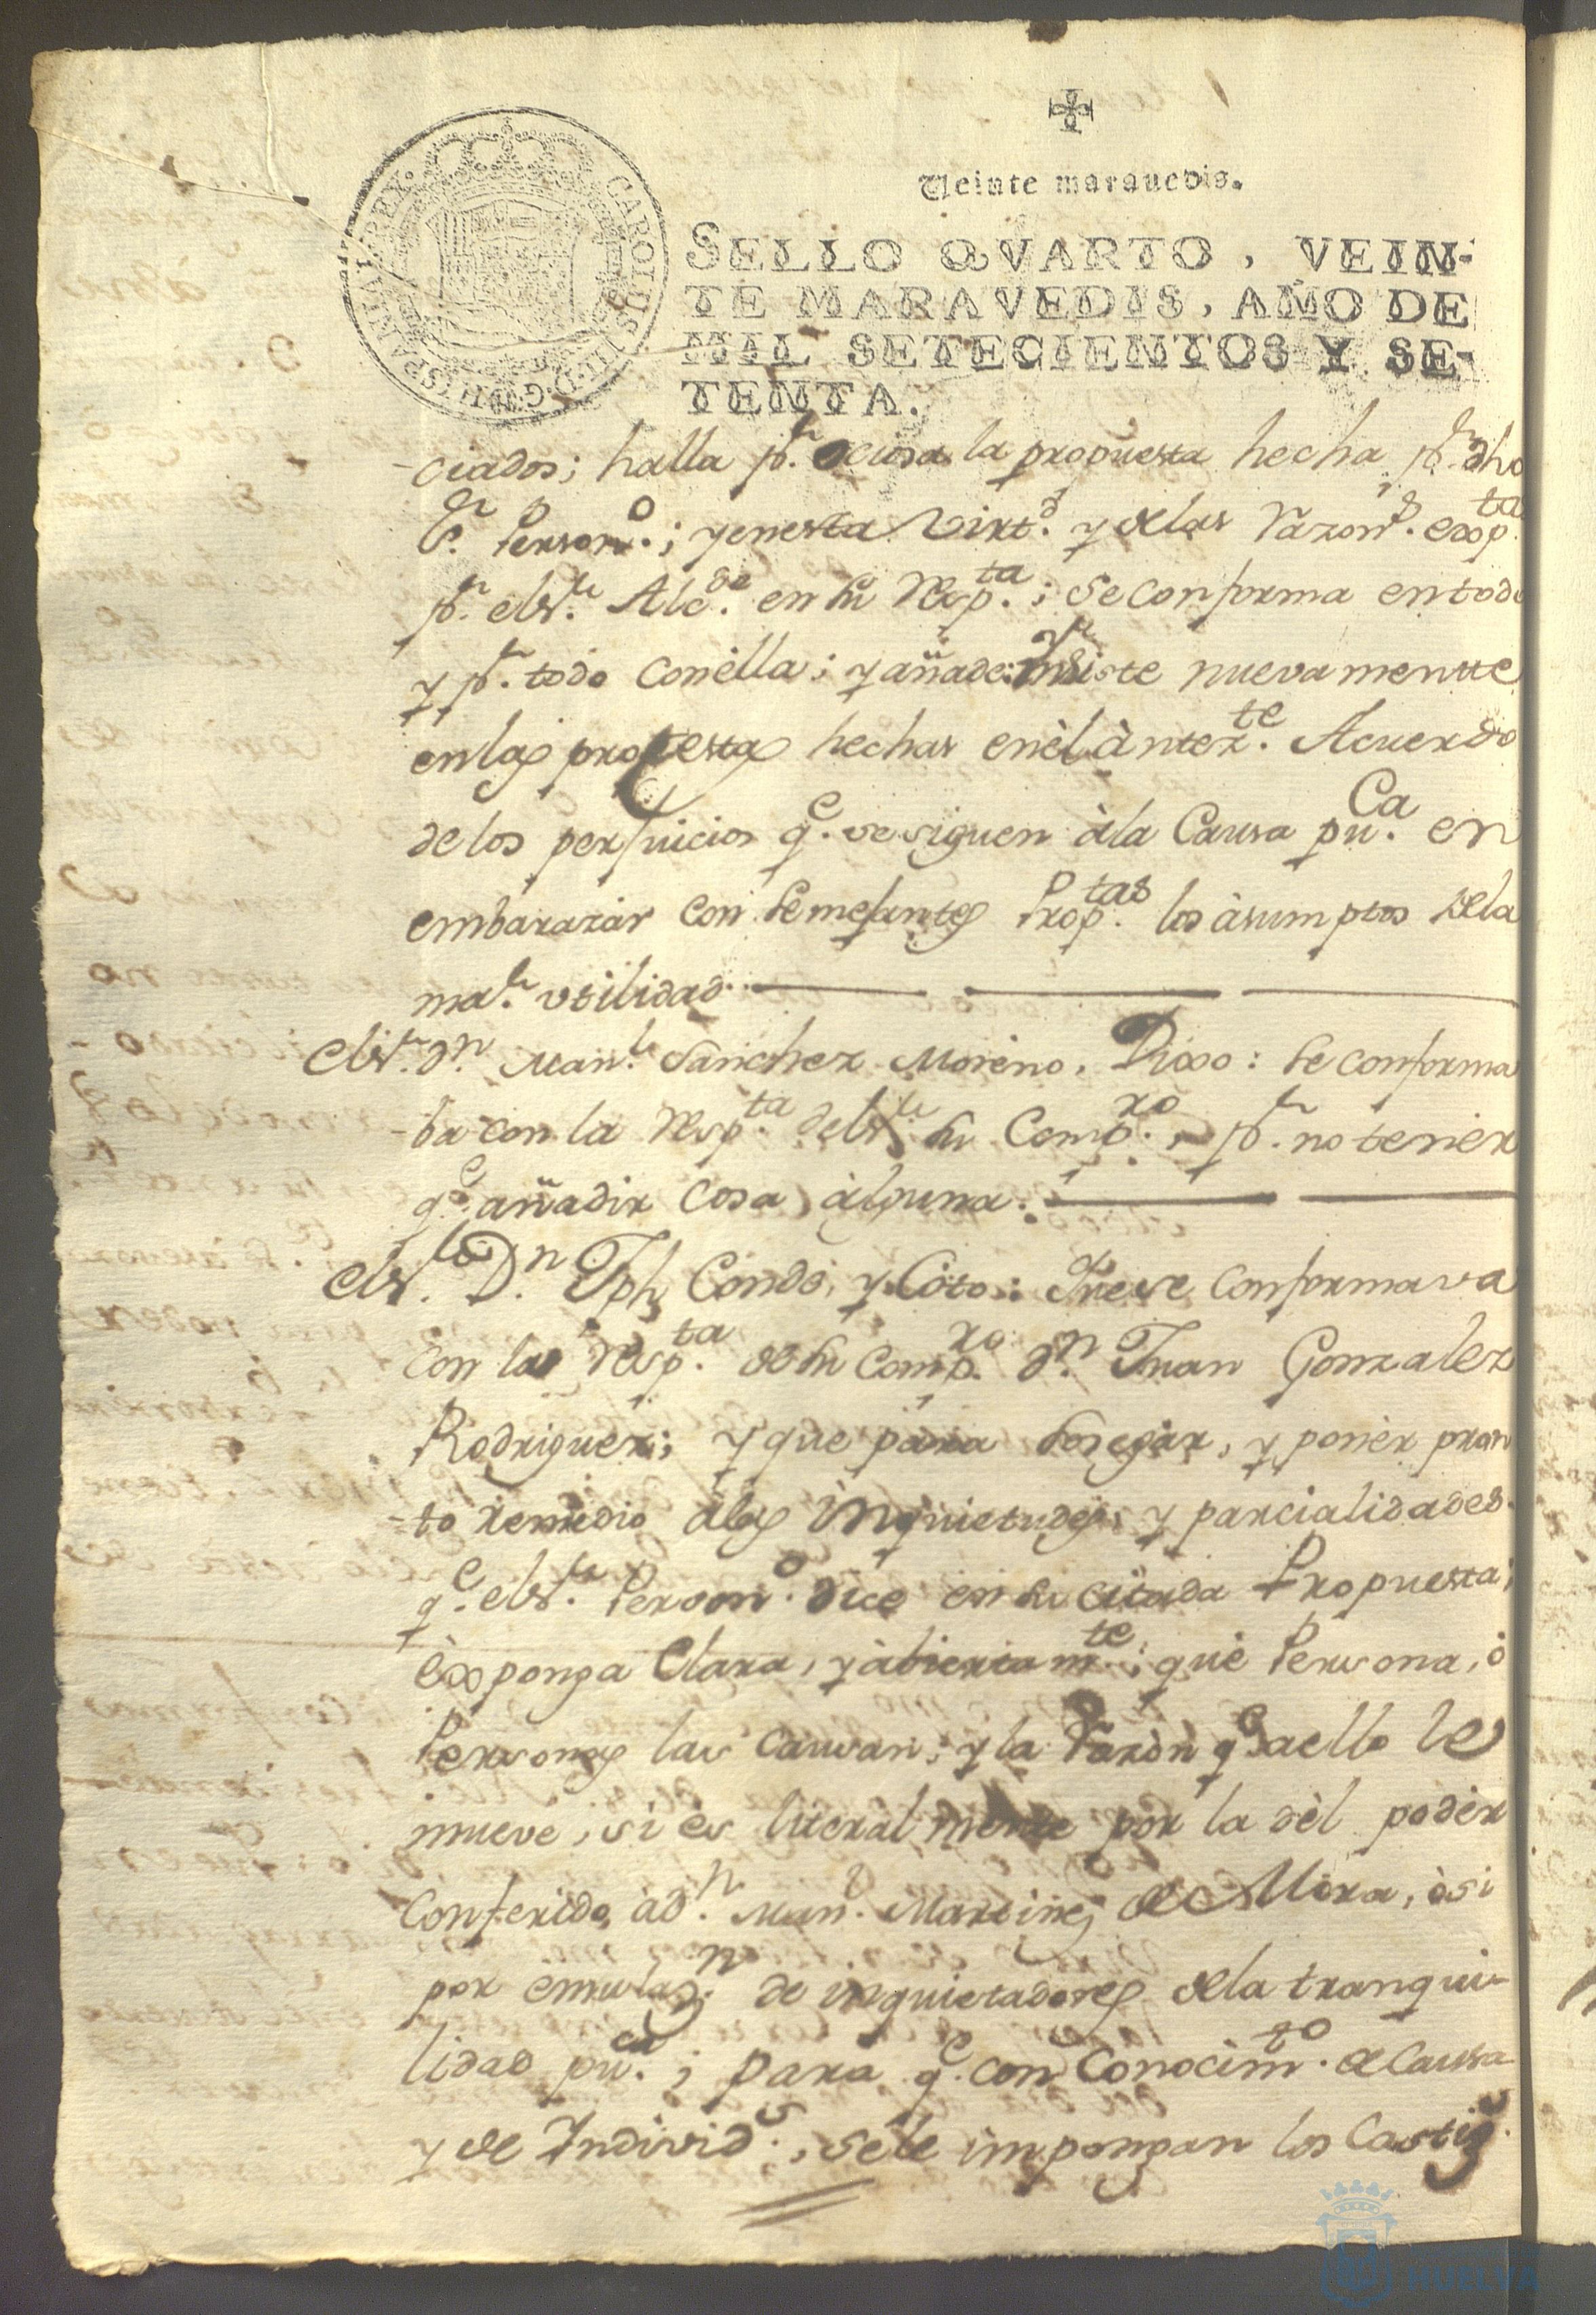 Veinte marauedis.
SELLO QVARTO, VEIN-
TE MARAVEDIS, AÑO DE
MIL SETECIENTOS Y SE-
TENTA.
CAROLUS III D.G. HISPANIAR REX.
-ciados; halla pr. ociosa la propuesta hecha pr. dho
Sr. Persono.; y en esta Virtd. y de las razons. expta.
pr. el Sr. Alcde. en su Respta.; Se conforma en todo
y pr. todo con èlla; y añade: insiste nuevamente
en las protestas hechas en èl ànterte. Acuerdo
de los perjuicios qe. se siguen à la Causa puca. en
embarazar con Semejantes Proptas. los àsumptos de la
mar. vtilidad.
el Sr. Dn. Manl. Sanchez Moreno. Dixo: Se conforma
-ba con la Respta. del Sr. su Compro., pr. no tener
qe. añadir cosa àlguna.
el Sr. Dn. Jph Conde, y Coto: Que se conformava
con la Respta. de su Compro. Dn. Juan Gonzalez
Rodriguez; y que para Sosegar, y poner pron
-to remedio àlas inquietudes, y parcialidades
qe. el Sr. Persono. dice en su citada Propuesta;
èxponga Clara, y àbiertamte.; què Persona, ò
Personas las causan; y la Razòn qe. a ello le
mueve, si es literalmente por la dèl poder
Conferido, à Dn. Manl. Martinez de Mora, ò si
por èmulasn. de inquietadores de la tranqui-
lidad puca.; para qe. con Conocimto. de Causa
y de Individs., se le impongan los Castigs.
HUELVA